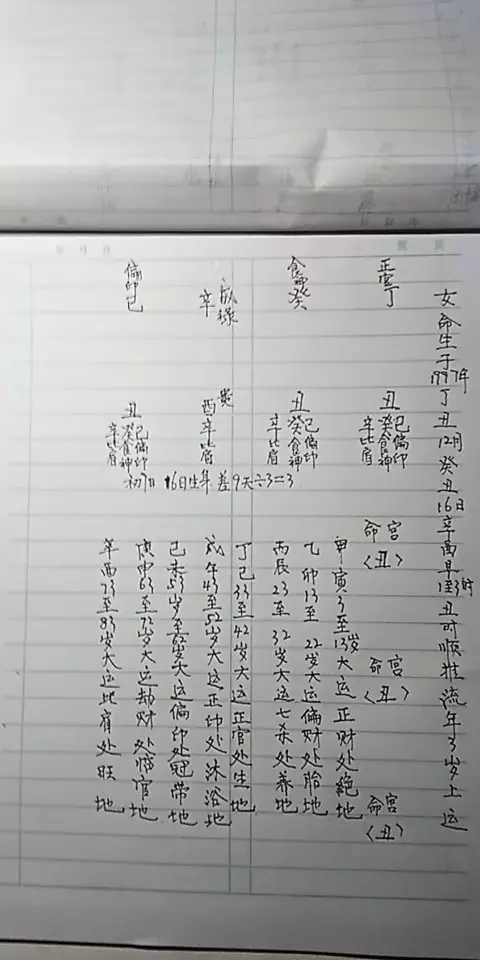 女命生于1997年丁丑12月癸丑16日辛酉早1至3时丑时顺推流年3岁上运
正官丁
丑
己偏印
癸食神
辛比肩
命宫
〈丑〉
命宫
〈丑〉
命宫
〈丑〉
食神癸
丑
己偏印
癸食神
辛比肩
辛
酉
辛比肩
偏印己
丑
己偏印
癸食神
辛比肩
初7日 16日生年差9天÷3=3
甲寅3至13岁大运正财处绝地
乙卯13至22岁大运偏财处胎地
丙辰23至32岁大运七杀处养地
丁巳33至42岁大运正官处生地
戊午43至52岁大运正印处沐浴地
己未53岁至62岁大运偏印处冠带地
庚申63至72岁大运劫财处临官地
辛酉73至83岁大运比肩处旺地